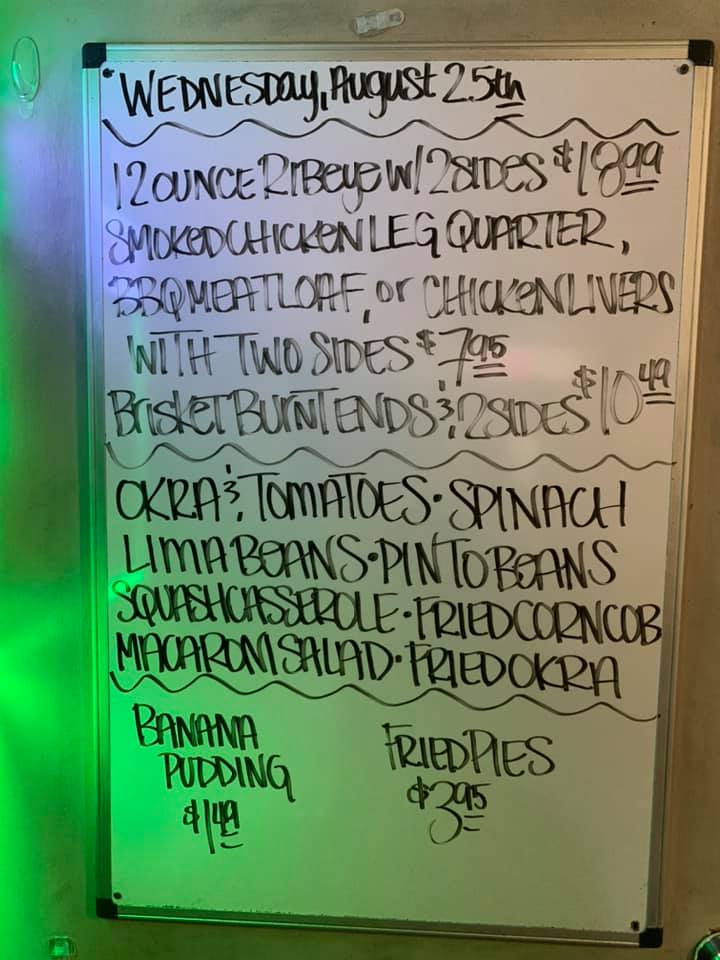 WEDNESDAY, AUGUST 25th
12 OUNCE RIBEYE W/ 2 SIDES $18.99
SMOKED CHICKEN LEG QUARTER,
BBQ MEATLOAF, or CHICKEN LIVERS
WITH TWO SIDES $7.95
BRISKET BURNT ENDS & 2 SIDES $10.49
OKRA & TOMATOES • SPINACH
LIMA BEANS • PINTO BEANS
SQUASH CASSEROLE • FRIED CORN COB
MACARONI SALAD • FRIED OKRA
BANANA PUDDING $1.49
FRIED PIES $3.95